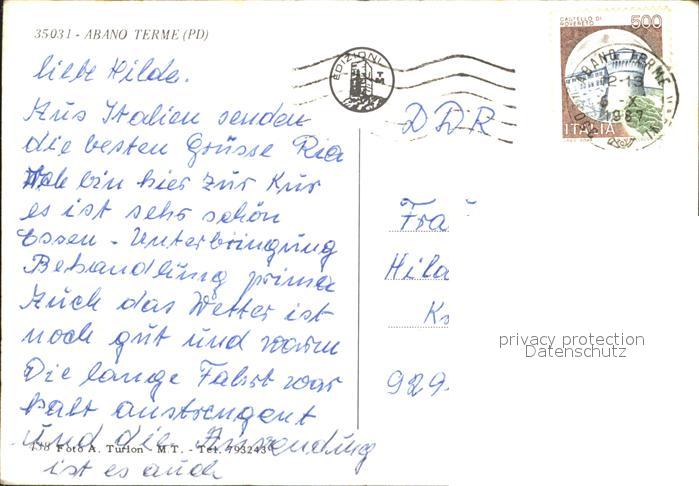 35031 - ABANO TERME (PD)
EDIZIONI
TM
CASTELLO DI ROVERETO
500
ABANO TERME
12-13
6 - X
1987
ITALIA
liebe Hilda.
Aus Italien senden
die besten Grüsse Ria
Ich bin hier zur Kur
es ist sehr schön
Essen - Unterbringung
Behandlung prima
Auch das Wetter ist
noch gut und warm
Die lange Fahrt war
halt anstrengent
und die Anwendung
ist es auch
438 Foto A. Turlon - M.T. - Tel. 793243
DDR
Fra
Hila
929
privacy protection
Datenschutz